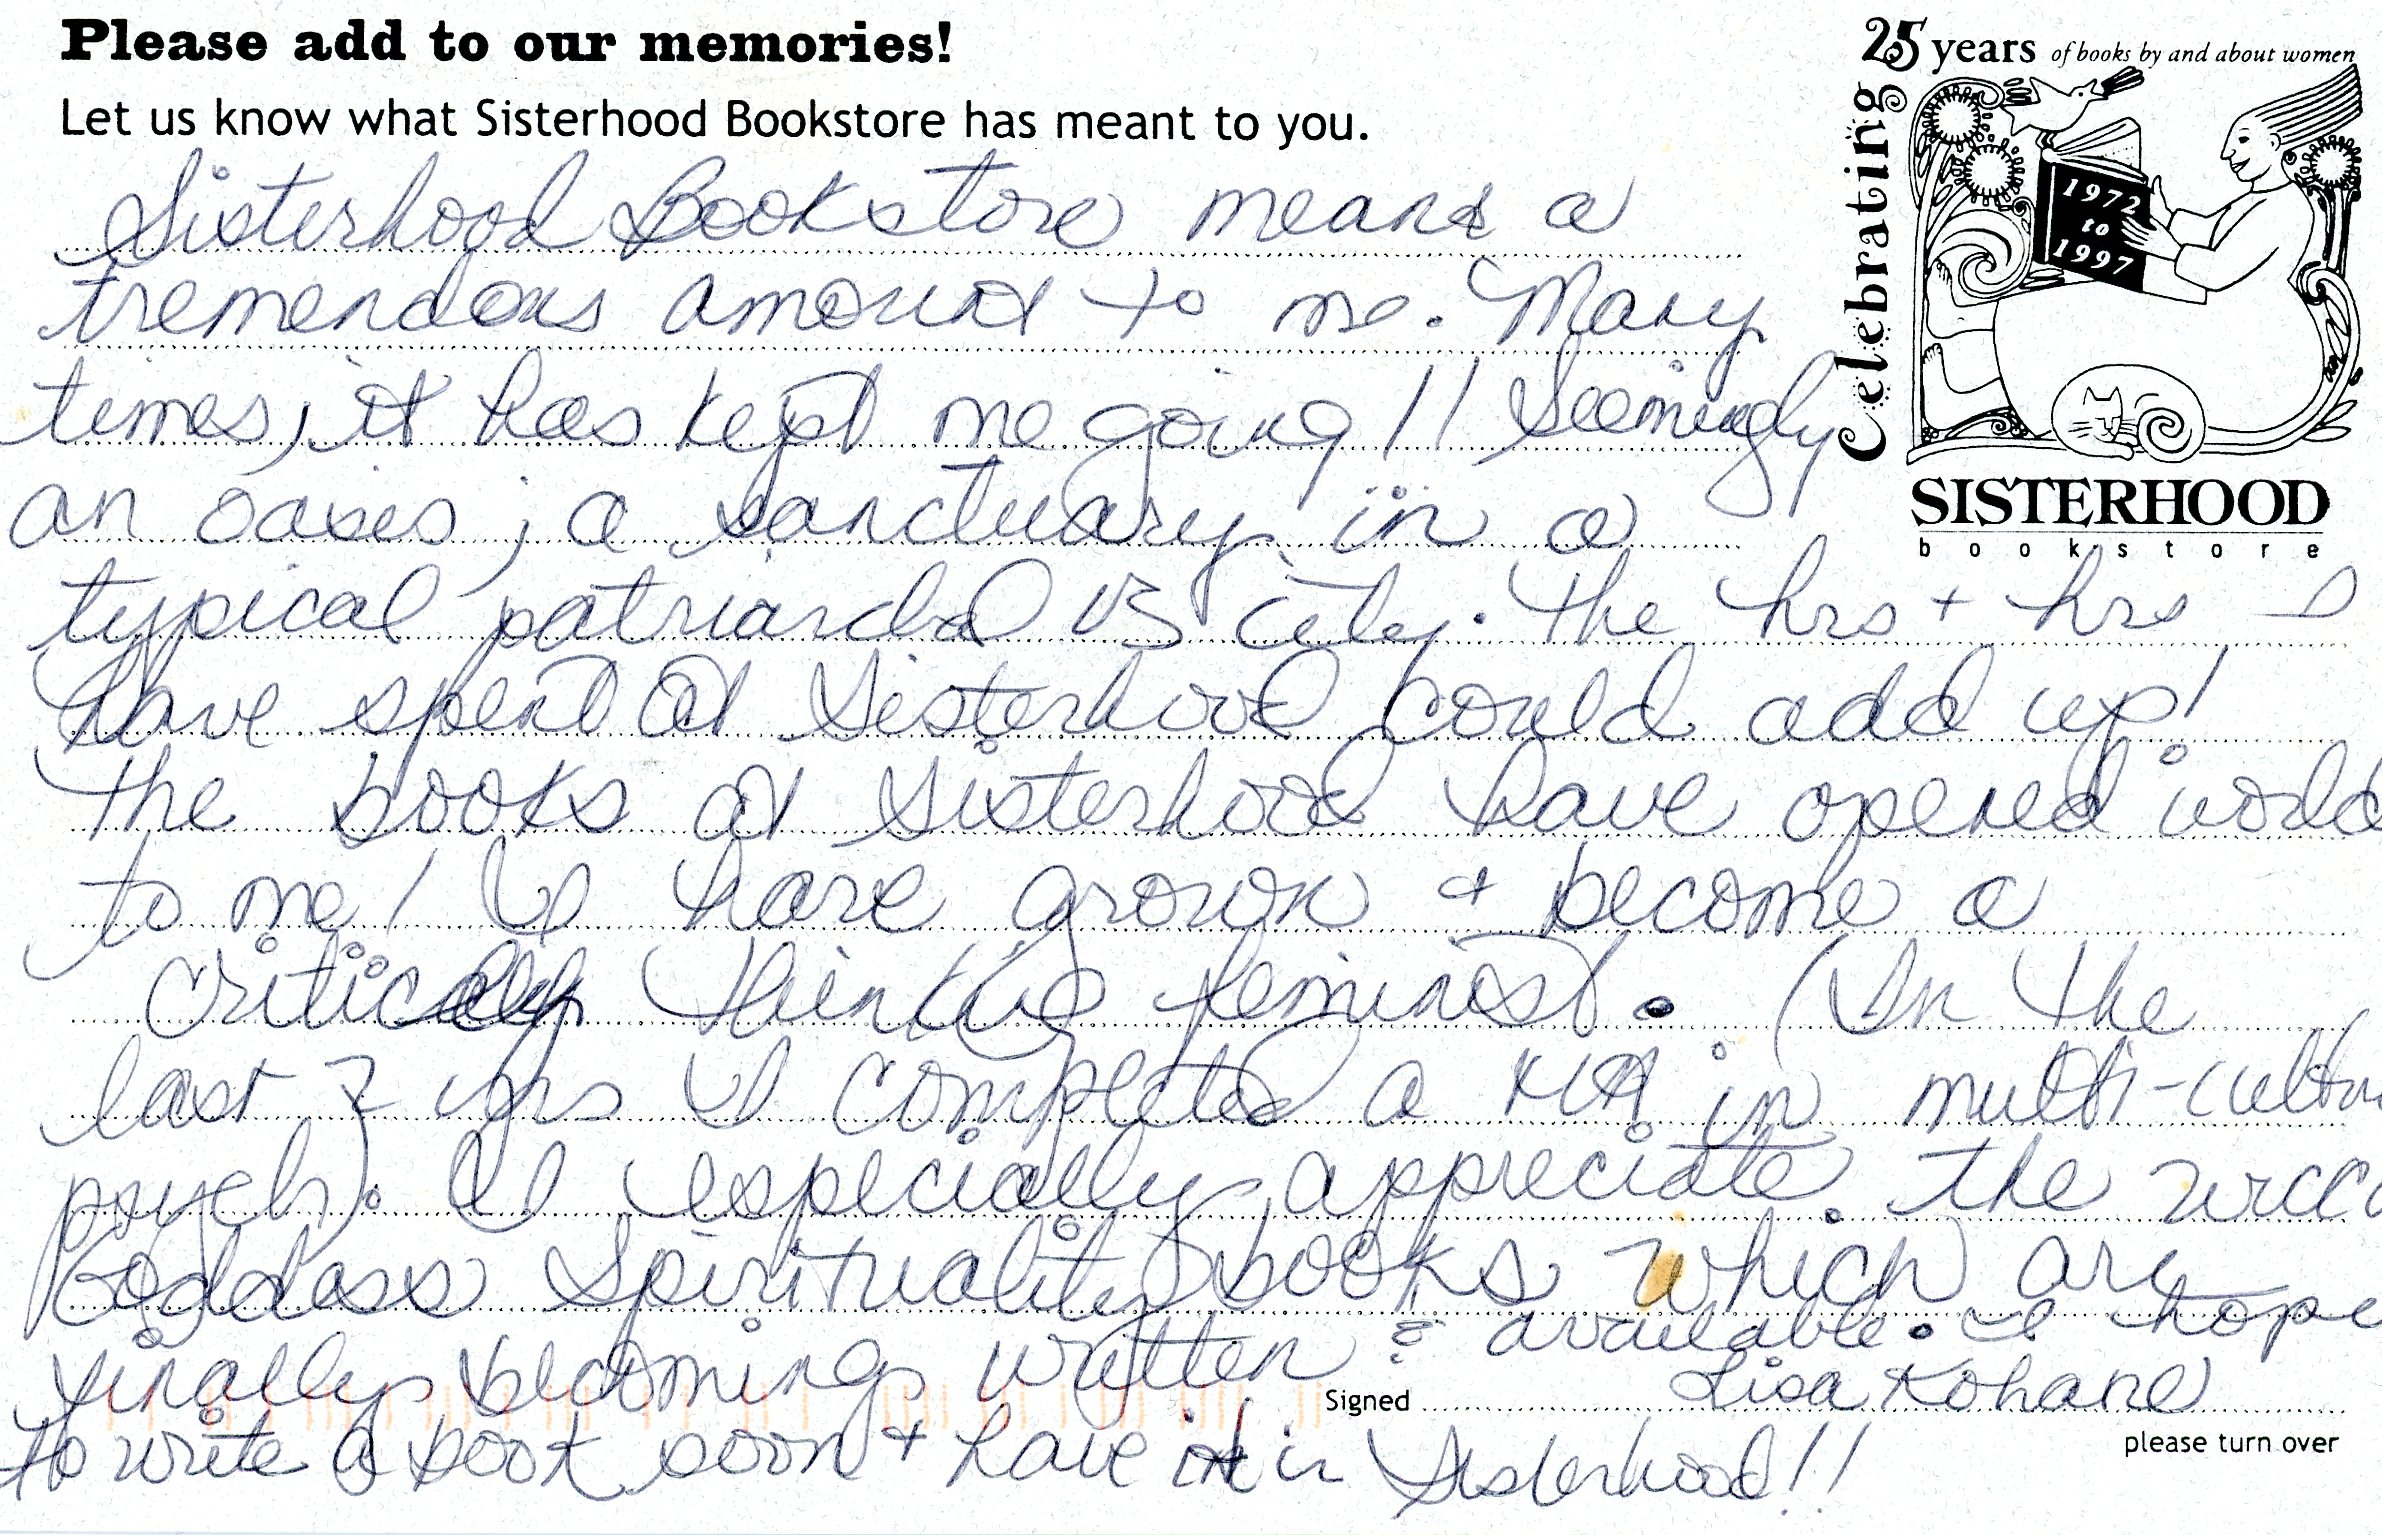 Please add to our memories!
Let us know what Sisterhood Bookstore has meant to you.
Celebrating
25 years of books by and about women
1972
to
1997
SISTERHOOD
bookstore
Sisterhood Bookstore means a
tremendous amount to me. Many
times, it has kept me going!! Seemingly
an oases; a sanctuary in a
typical patriarchal US city. The hrs + hrs I
have spent at Sisterhood could add up!
The books at Sisterhood have opened world
to me! I have grown + become a
critically thinking feminist. (In the
last 7 yrs I completed a MA in multi-cultur
psych). I especially appreciate the wicca
Goddess Spirituality books which are
finally becoming written & available. I hope
to write a book soon + have it in Sisterhood!!
Signed Lisa Kohane
please turn over